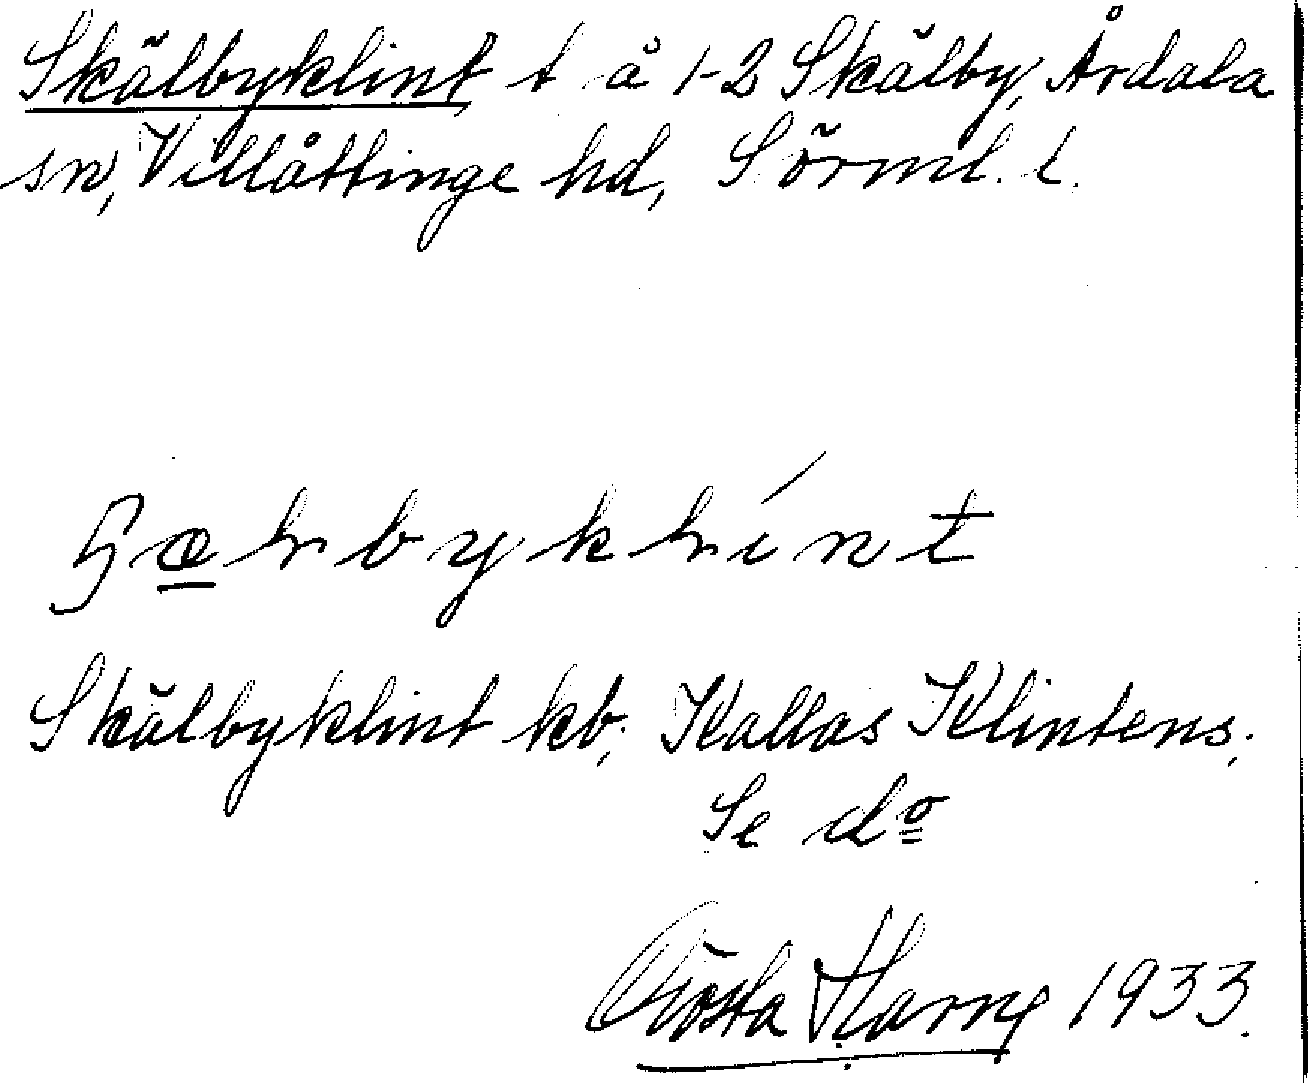 Skälbyklint t å 1-2 Skälby, Årdala
sn, Villåttinge hd, Sörml. l.
Skälbyklint kb; Kallas Klintens;
Se do
Gösta Harne 1933.